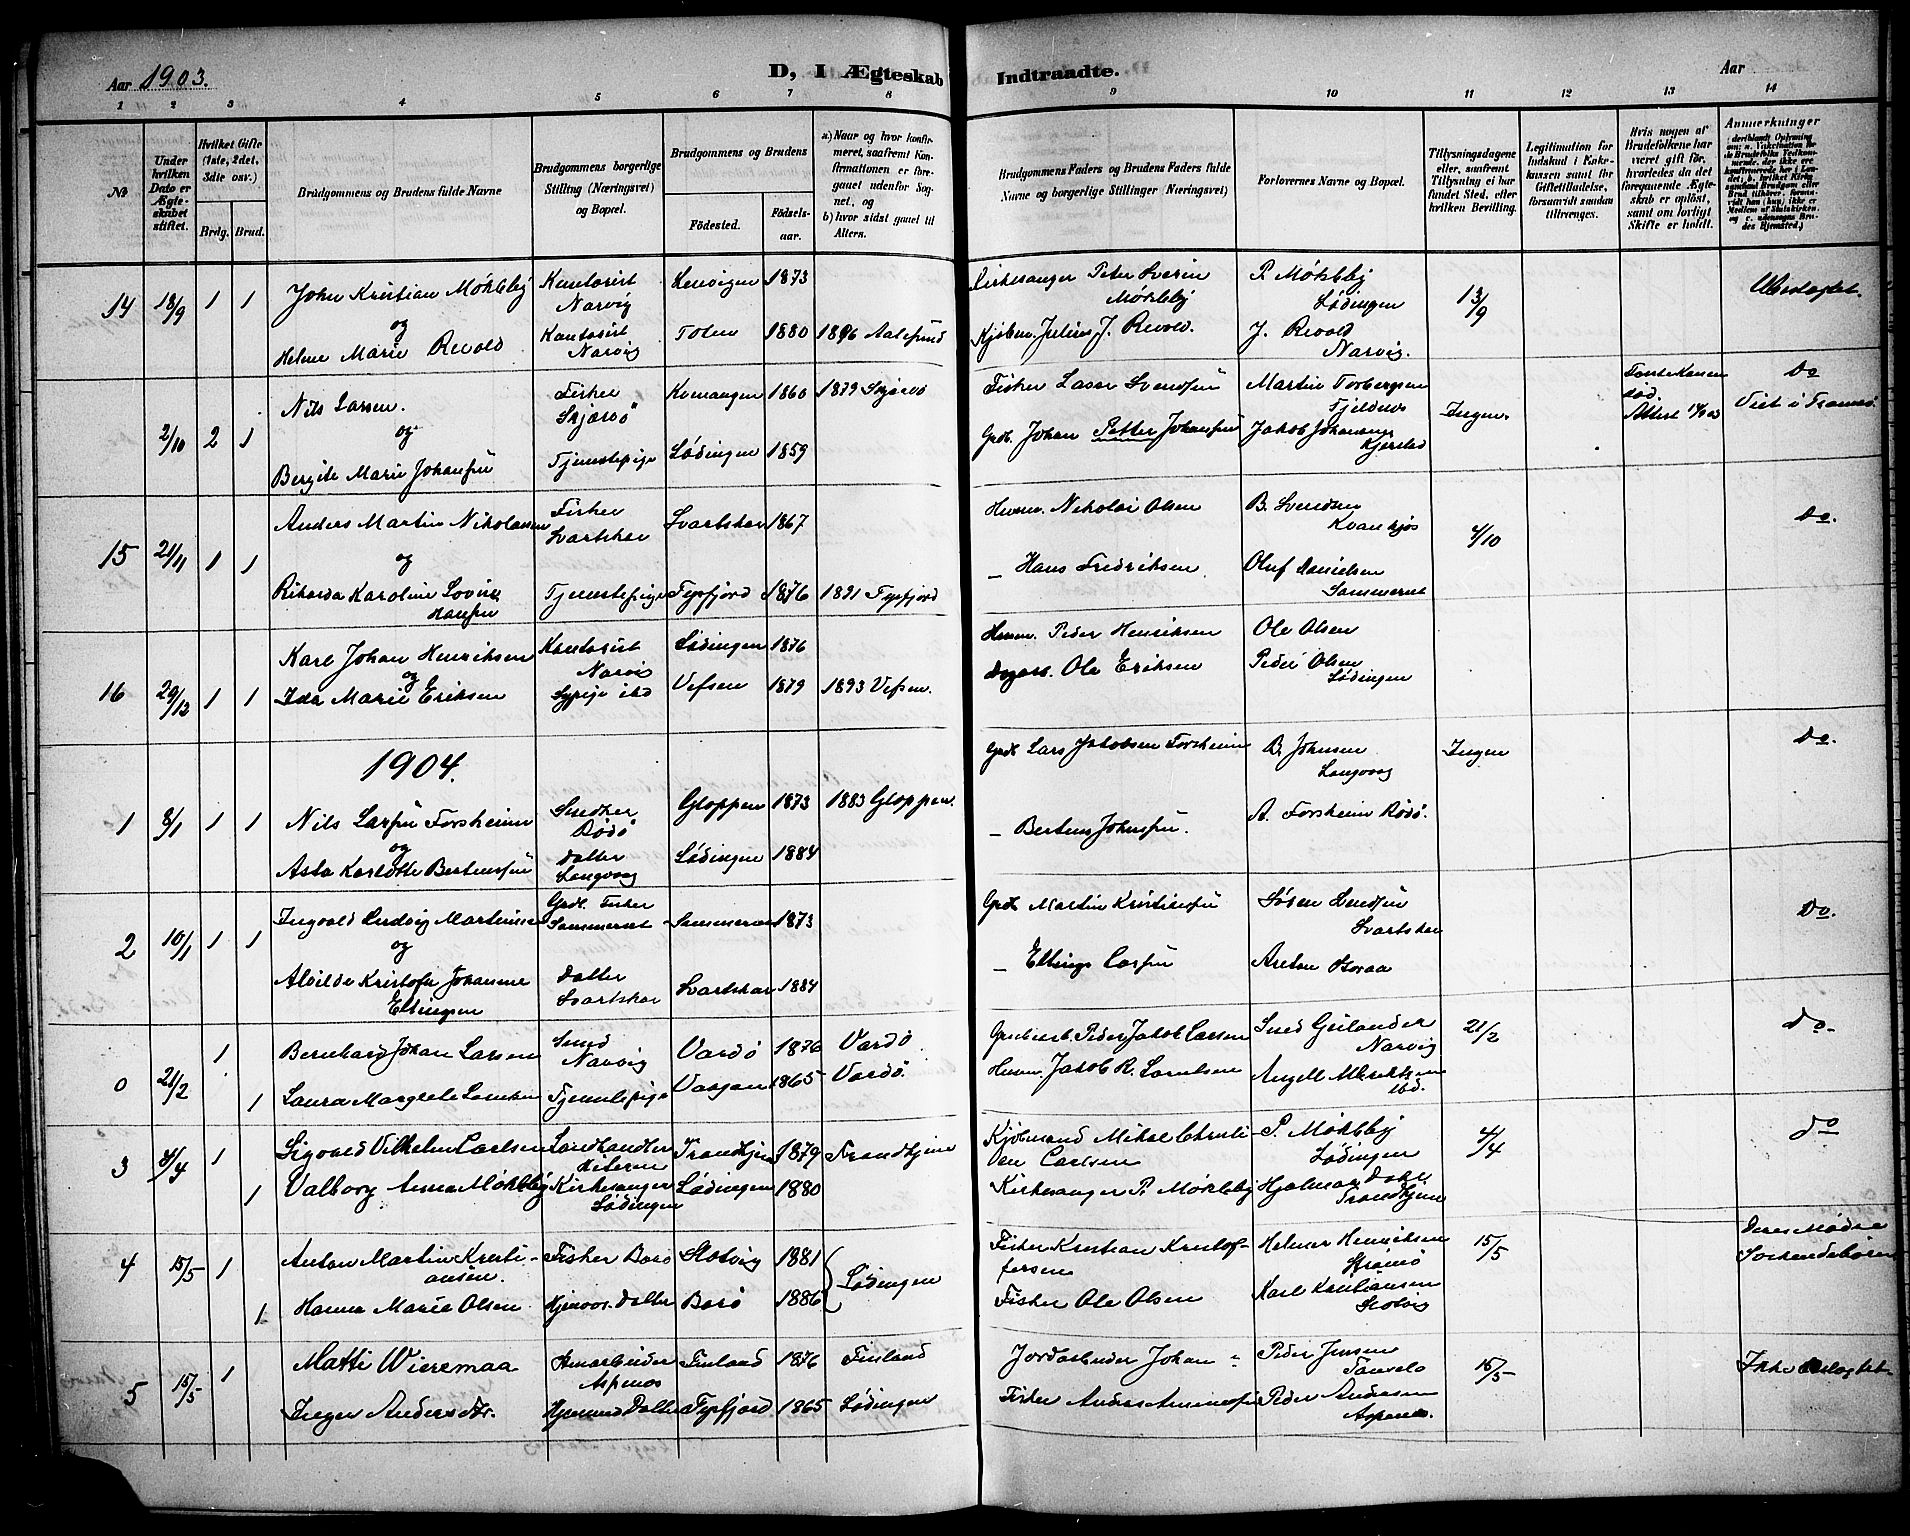 Aar 1903.
D, I Ægteskab Indtraadte.
Aar
1 2 3 4 5 6 7 8 9 10 11 12 13 14
№
Under hvilken Dato er Ægteskabet stiftet.
Hvilket Gifte (1ste, 2det, 3die osv.)
Brdg. Brud.
Brudgommens og Brudens fulde Navne
Brudgommens borgerlige Stilling (Næringsvei) og Bopæl.
Brudgommens og Brudens
Födested. Födselsaar.
a.) Naar og hvor konfirmeret, saafremt Konfirmationen er foregaaet udenfor Sognet, og
b) hvor sidst gaaet til Altern.
Brudgommens Faders og Brudens Faders fulde Navne og borgerlige Stillinger (Næringsvei)
Forlovernes Navne og Bopæl.
Tillysningsdagene eller, saafremt Tillysning ei har fundet Sted, efter hvilken Bevilling.
Legitimation for Indskud i Enkekassen samt for Giftetilladelse, forsaavidt saadan tiltrænges.
Hvis nogen af Brudefolkene har været gift før, hvorledes da det foregaaende Ægteskab er opløst, samt om lovligt Skifte er holdt.
Anmerkninger
14 18/9 1 1 John Kristian Møkleby Kontorist Narvig 1873 Kirkesanger Peter Severin Møkleby P. Møkleby Lødingen 13/9
og
Helene Marie Revold Kontorist Narvig Toten 1880 1896 Aalesund Kjøbm. Julius J. Revold. J. Revold Narvig.
2/10 2 1 Nils Larsen. Fisker Skjærvö Kvenangen 1860 1879 Skjærvö Fisker Lasse Svendsen Martin Torbergsen Fjeldnes Ingen. død. Attest Do Viet i Tromsö.
og
Bergite Marie Johansen Tjenestepige Lødingen 1859 Grdb. Johan Petter Johansen Jakob Johansen Kjerstad
15 21/11 1 1 Anders Martin Nikolaisen Fisker Svartskar Svartskar 1867 Husm. Nikolai Olsen B. Svendsen Kvankjos 4/10 Do.
og
Rikarda Karoline Lovise Hansen Tjenestepige Tysfjord 1876 1891 Tysfjord – Hans Fredriksen Oluf Danielsen Sommerset
16 29/12 1 1 Karl Johan Henriksen Kontorist Narvig Lødingen 1876 Husm. Peder Henriksen Ole Olsen
og
Ida Marie Eriksen Sypige ibd Vefsen 1879 1893 Vefsen. Ole Eriksen Peder Olsen Lødingen
1904.
1 8/1 1 1 Nils Larsen Forsheim Snedker Rödö Gloppen 1873 1883 Gloppen. Grdb Lars Jakobsen Forsheim B. Johnsen Langvaag Ingen Do.
og
Asta Karlotte Berteussen Datter Langvaag Lödingen 1884 – Berteus Johnsen. A. Forsheim Rödö.
2 10/1 1 1 Ingvald Ludvig Martinussen Grdb. Fisker Sommerset Sommerset 1873 Grdb Martin Kristiansen Søren Svendsen Svartskar Do.
og
Alvilde Kristofa Johanna Ellingsen Datter Svartskar Svartskar 1884 – Ellings Larsen
0 21/2 1 1 Bernhard Johan Larsen Smed Narvig Vardö 1876 Vardö Peder Jakob Larsen Geilander Narvig 21/2 Do.
Laura Margrete Tjenestepige Vaagan 1865 Vardö. Husm. Jakob R. ibd.
3 4/4 1 1 Sigvald Vilhelm Carlsen Landhandler Hiteren Trondhjem 1879 Trondhjem Kjøbmand Mikal Christian Carlsen P. Møkleby Lødingen 4/4 do
Valborg Anna Møkleby Kirkesanger Lödingen Lødingen 1880 Kirkesanger P. Møkleby Hjalmar Dahl Trondhjem
4 15/5 1 1 Anton Martin Kristiansen. Fisker Barö Slotvig 1881 Lødingen Fisker Kristian Kristoffersen Helmer Henriksen 15/5 Deres Mødre Söskendebörn
Hanna Maria Olsen Hjemvær. Datter Barö 1886 Fisker Ole Olsen Karl Kristiansen Slotvig
5 15/5 1 Matti Wieremaa Aspenes Finland 1876 Finland Jordarbeider Johan Peder Jensen 15/5 Ikke beslægtet.
Inger Andersdtr. Datter Tysfjord 1865 Lødingen Fisker Anders Peder Andersen Aspenes.